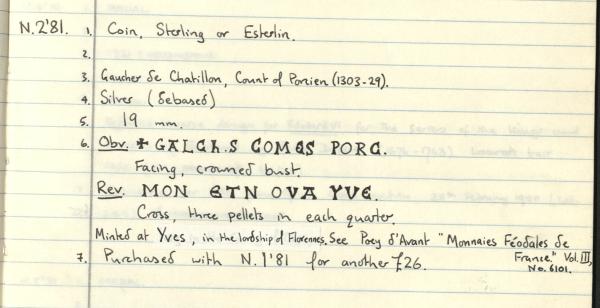 N.2'81. 1. Coin, Sterling or Esterlin.
2.
3. Gaucher de Chatillon, Count of Porcien (1303-29).
4. Silver (debased)
5. 19 mm.
6. Obv. ✠ GALCh.S COMES PORC.
Facing, crowned bust.
Rev. MON ETN OVA YVE.
Cross, three pellets in each quarter.
Minted at Yves, in the lordship of Florennes. See Poey d'Avant "Monnaies Féodales de
France." Vol. III,
No. 6101.
7. Purchased with N.1'81 for another £26.